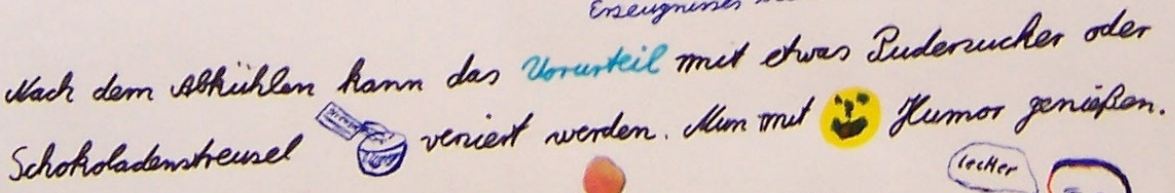 Erzeugnisses
Nach dem Abkühlen kann das Vorurteil mit etwas Puderzucker oder
Schokoladenstreusel verziert werden. Nun mit Humor genießen.
lecker